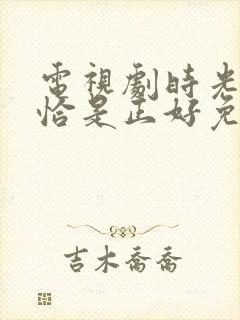 電視劇時光
恰是正好免
吉木喬喬